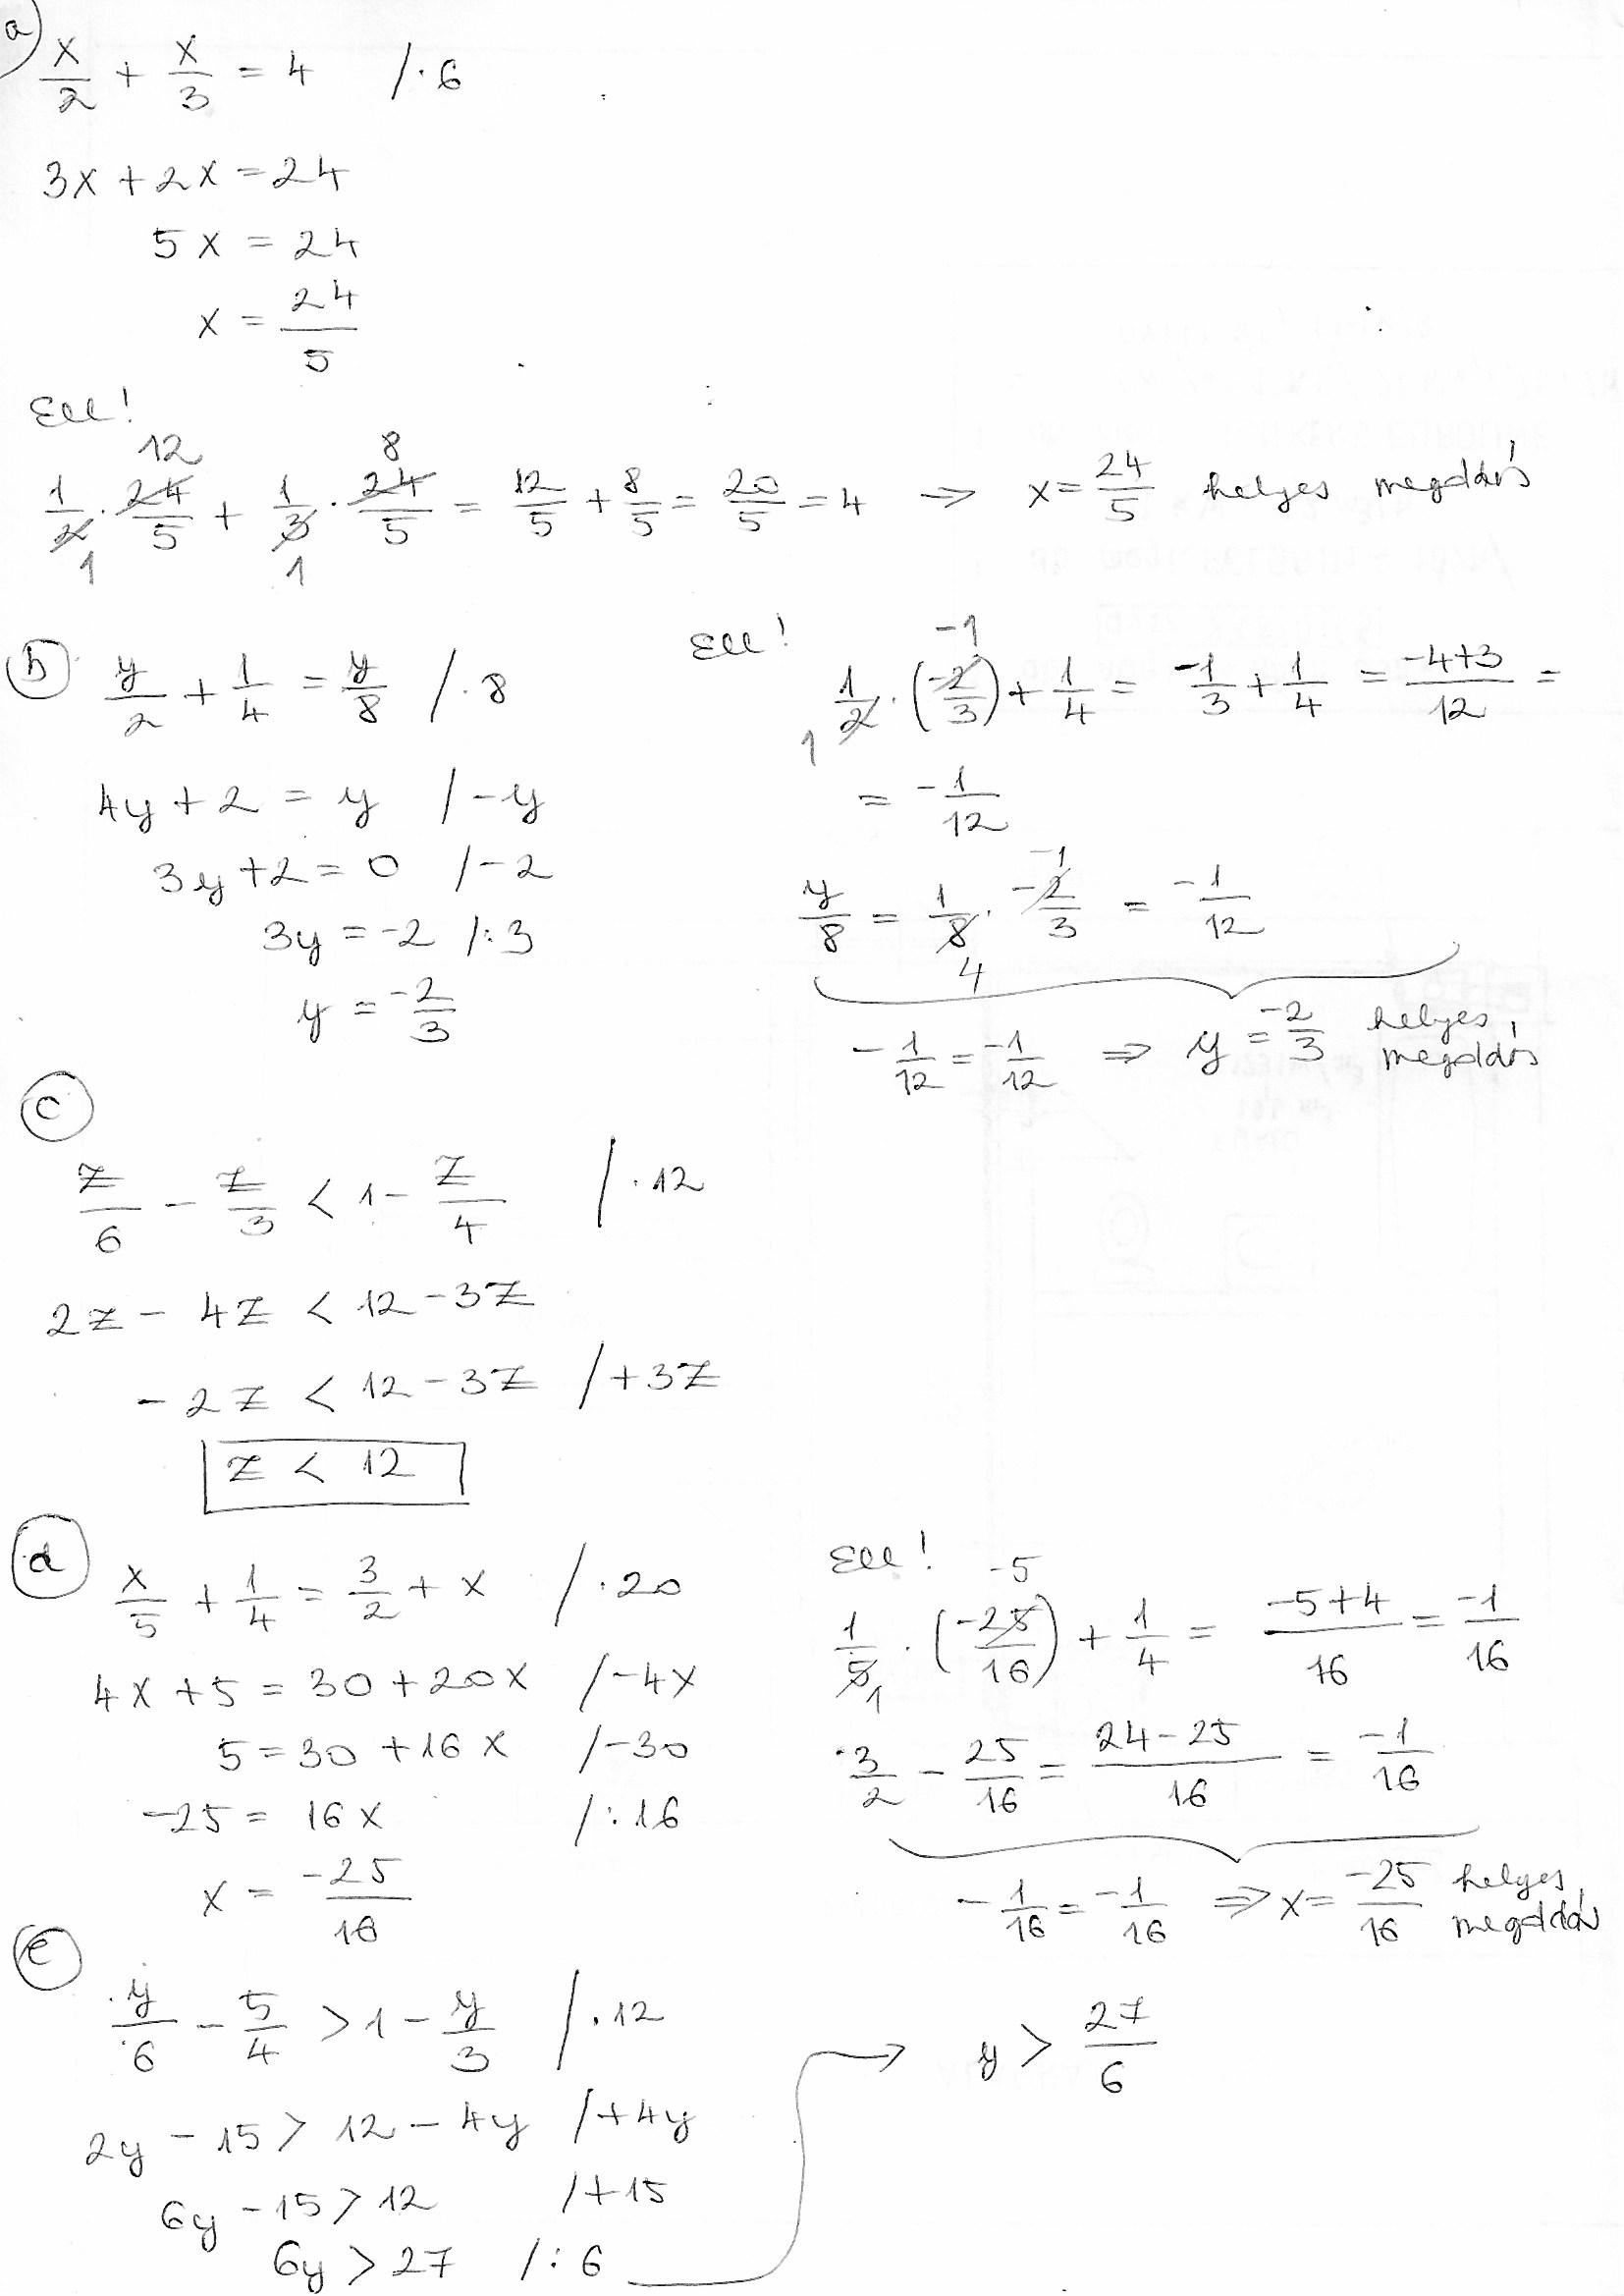 a)
x/2 + x/3 = 4 /·6
3x + 2x = 24
5x = 24
x = 24/5
Ell!
1/2 · 24/5 + 1/3 · 24/5 = 12/5 + 8/5 = 20/5 = 4 ⇒ x = 24/5 helyes megoldás
12 8
1 1
b) y/2 + 1/4 = y/8 /·8
4y + 2 = y /-y
3y + 2 = 0 /-2
3y = -2 /:3
y = -2/3
Ell!
-1
1/2 · (-2/3) + 1/4 = -1/3 + 1/4 = (-4+3)/12 =
1
= -1/12
-1
y/8 = 1/8 · -2/3 = -1/12
4
-1/12 = -1/12 ⇒ y = -2/3 helyes
megoldás
c)
z/6 - z/3 < 1 - z/4 /·12
2z - 4z < 12 - 3z
-2z < 12 - 3z /+3z
z < 12
d) x/5 + 1/4 = 3/2 + x /·20
4x + 5 = 30 + 20x /-4x
5 = 30 + 16x /-30
-25 = 16x /:16
x = -25/16
Ell!
-5
1/5 · (-25/16) + 1/4 = (-5+4)/16 = -1/16
1
3/2 - 25/16 = (24-25)/16 = -1/16
-1/16 = -1/16 ⇒ x = -25/16 helyes
megoldás
e)
y/6 - 5/4 > 1 - y/3 /·12
2y - 15 > 12 - 4y /+4y
6y - 15 > 12 /+15
6y > 27 /:6
→ y > 27/6